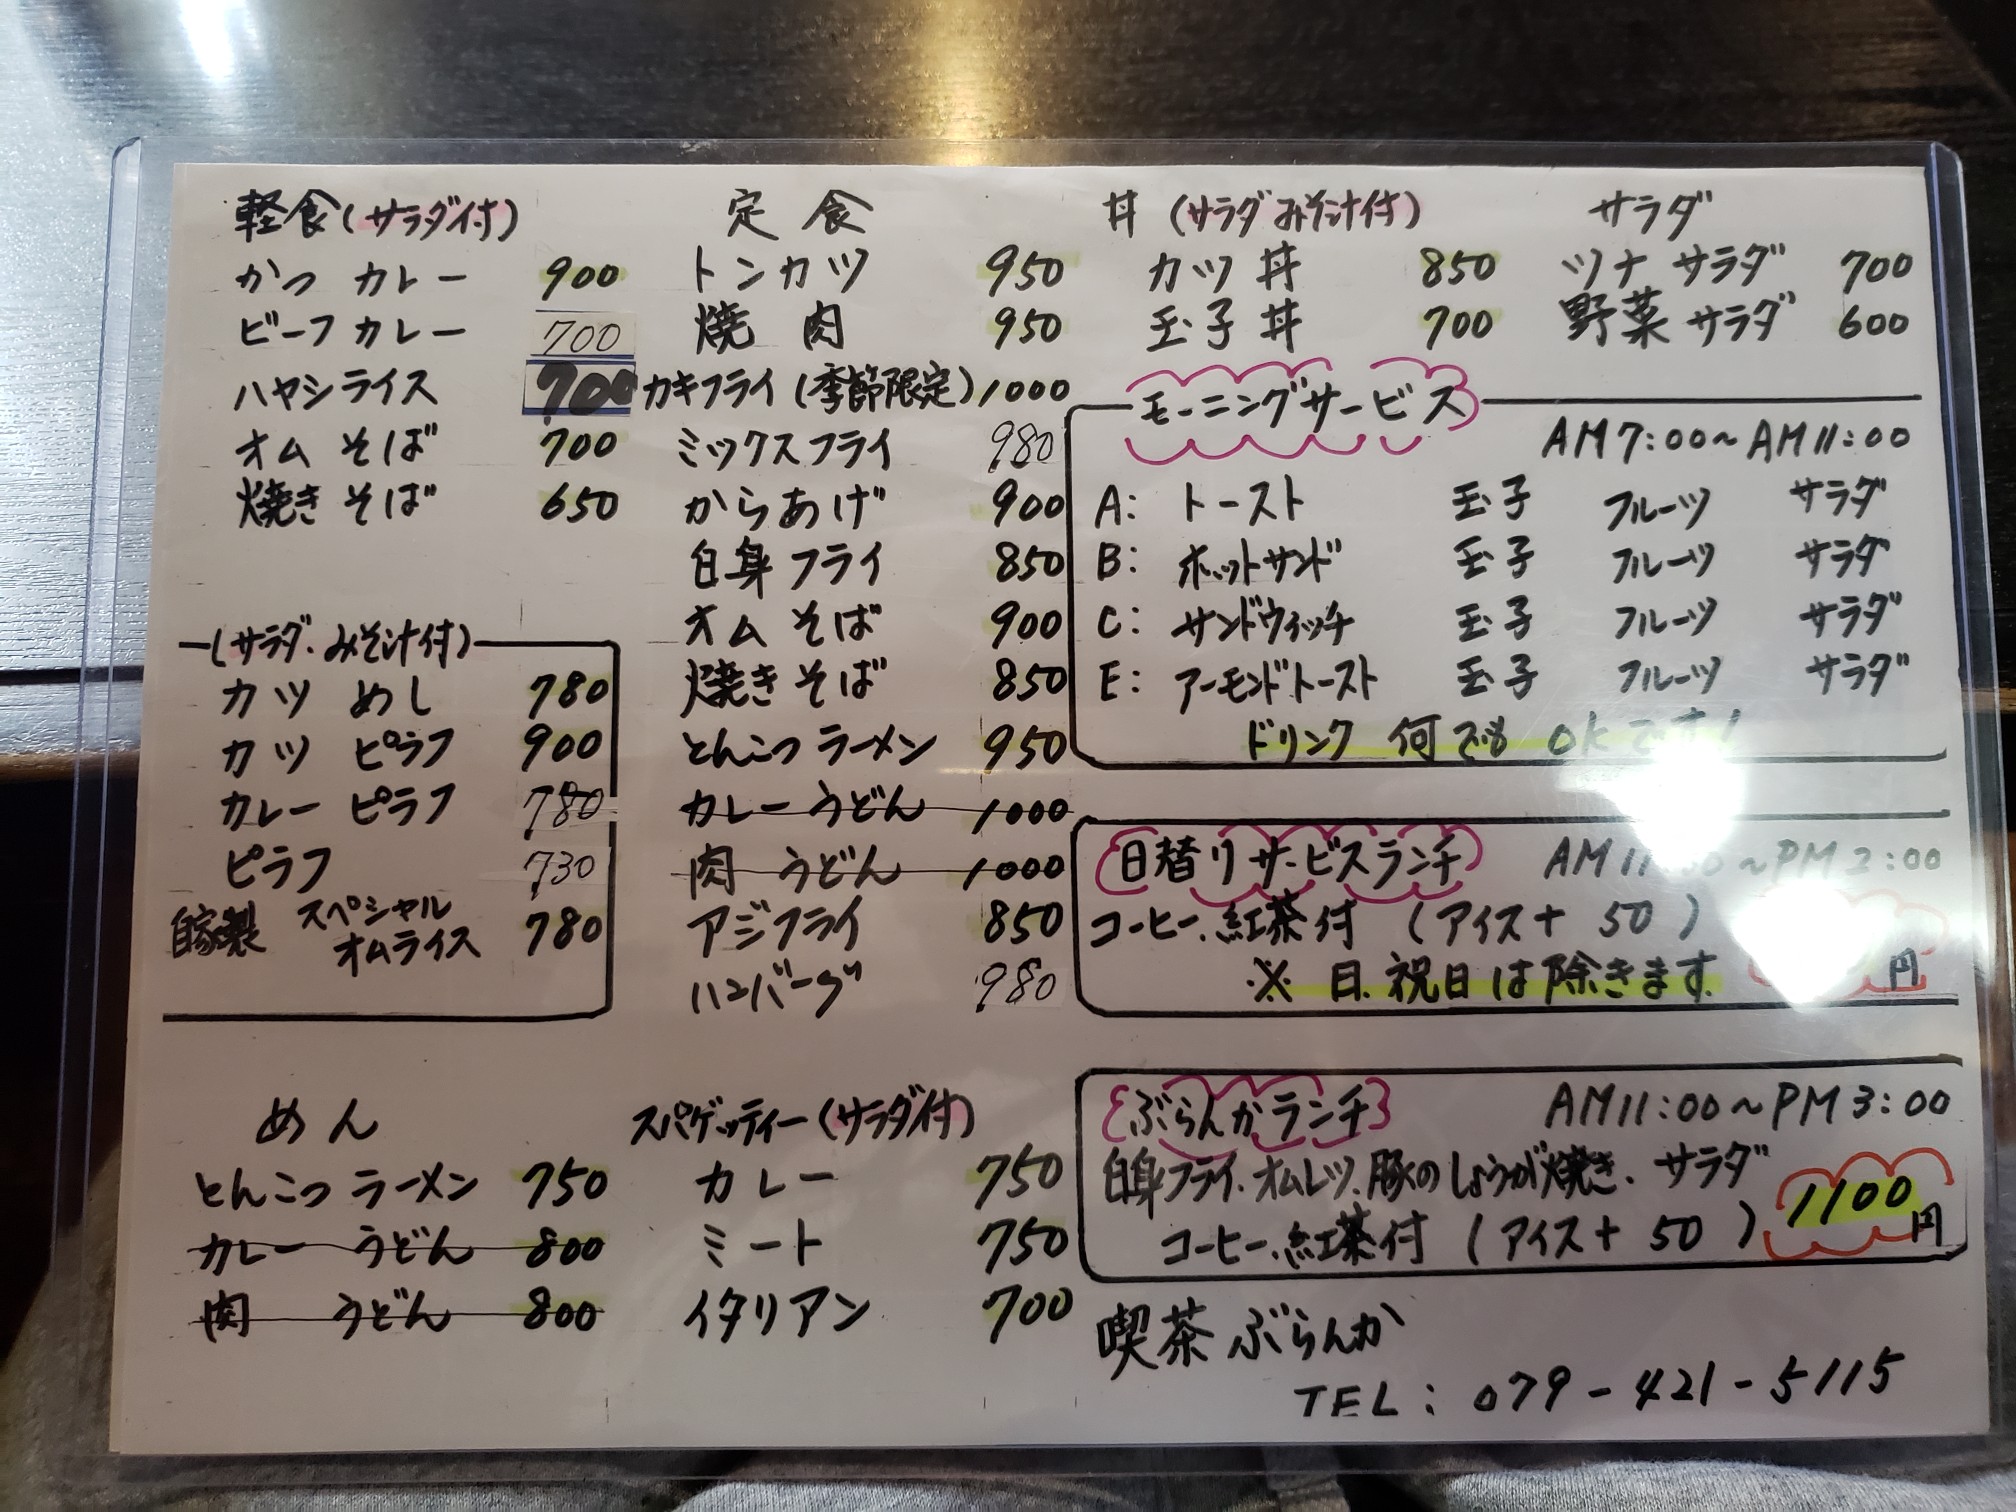 軽食(サラダ付)
かつ カレー 900
ビーフカレー 700
ハヤシライス 700
オム そば 700
焼き そば 650
(サラダ.みそ汁付)
カツ めし 780
カツ ピラフ 900
カレー ピラフ 780
ピラフ 730
自家製 スペシャル オムライス 780
めん
とんこつ ラーメン 750
カレー うどん 800
肉 うどん 800
定食
トンカツ 950
焼肉 950
カキフライ(季節限定) 1000
ミックスフライ 980
からあげ 900
白身フライ 850
オム そば 900
焼き そば 850
とんこつ ラーメン 950
カレー うどん 1000
肉 うどん 1000
アジフライ 850
ハンバーグ 980
スパゲッティー(サラダ付)
カレー 750
ミート 750
イタリアン 700
丼 (サラダ みそ汁付)
カツ丼 850
玉子丼 700
サラダ
ツナ サラダ 700
野菜 サラダ 600
モーニングサービス
AM7:00~AM11:00
A: トースト 玉子 フルーツ サラダ
B: ホットサンド 玉子 フルーツ サラダ
C: サンドウィッチ 玉子 フルーツ サラダ
E: アーモンドトースト 玉子 フルーツ サラダ
ドリンク 何でも OKです!
日替りサービスランチ AM11 ~PM2:00
コーヒー.紅茶付 (アイス+50)
※ 日.祝日は除きます 円
ぶらんかランチ AM11:00~PM3:00
白身フライ.オムレツ.豚のしょうが焼き.サラダ
コーヒー.紅茶付 (アイス+50) 1100円
喫茶 ぶらんか
TEL:079-421-5115